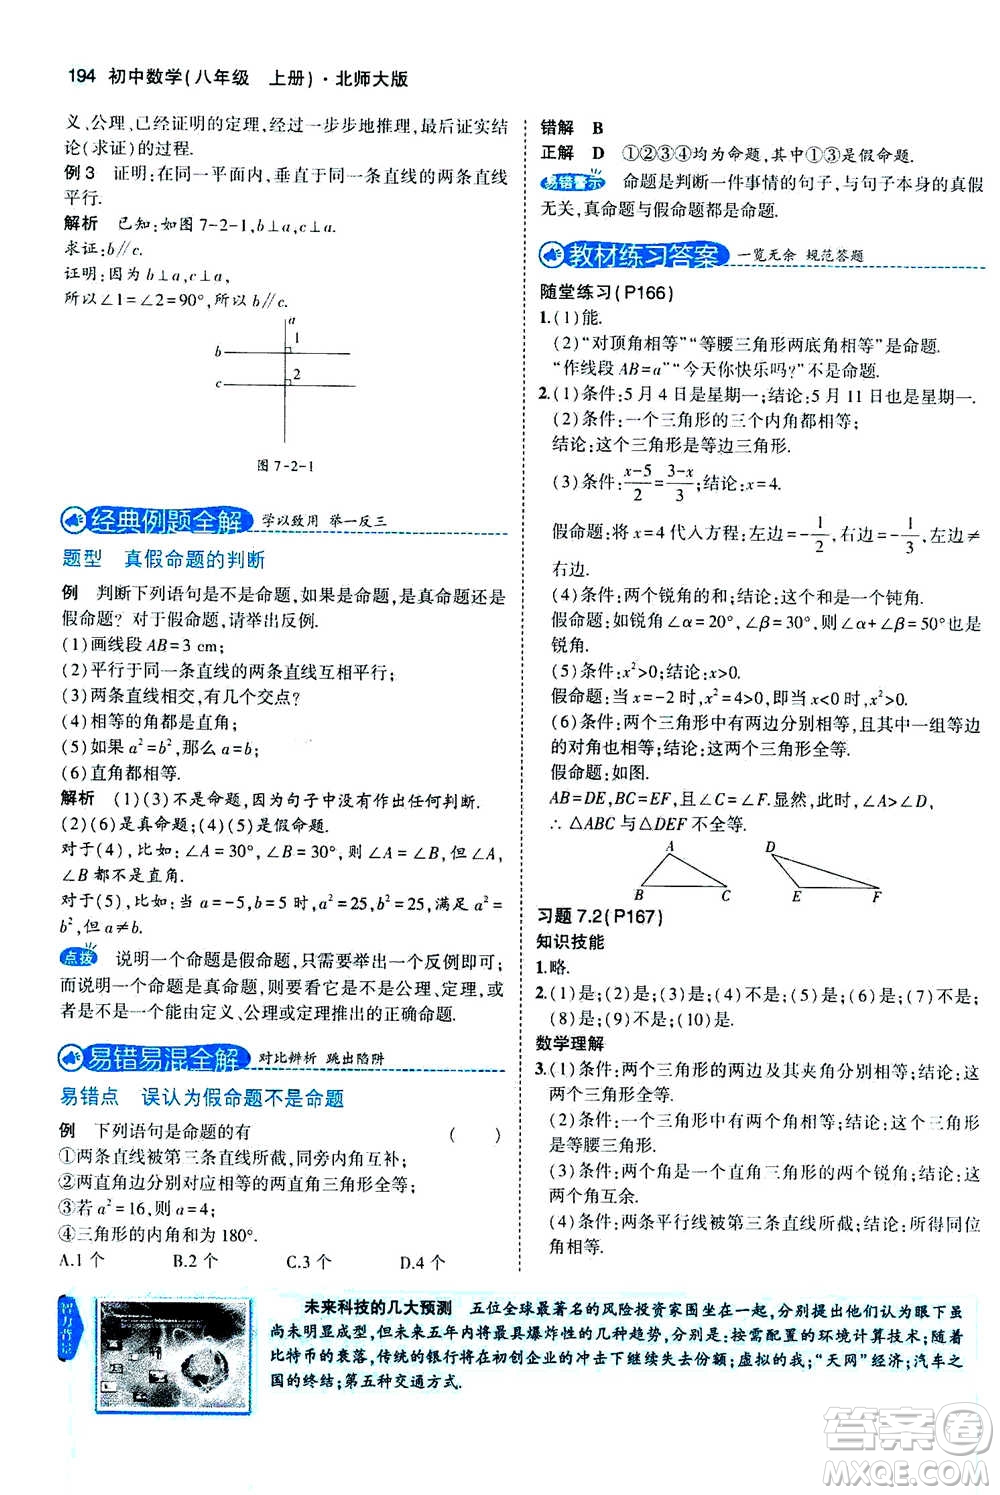 194 初中数学(八年级 上册)·北师大版
义,公理,已经证明的定理,经过一步步地推理,最后证实结
论(求证)的过程.
例 3 证明:在同一平面内,垂直于同一条直线的两条直线
平行.
解析 已知:如图 7-2-1,b⊥a,c⊥a.
求证:b∥c.
证明:因为 b⊥a,c⊥a,
所以∠1=∠2=90°,所以 b∥c.
a
1
b
2
c
图 7-2-1
经典例题全解 学以致用 举一反三
题型 真假命题的判断
例 判断下列语句是不是命题,如果是命题,是真命题还是
假命题? 对于假命题,请举出反例.
(1)画线段 AB=3 cm;
(2)平行于同一条直线的两条直线互相平行;
(3)两条直线相交,有几个交点?
(4)相等的角都是直角;
(5)如果 a²=b²,那么 a=b;
(6)直角都相等.
解析 (1)(3)不是命题,因为句子中没有作出任何判断.
(2)(6)是真命题;(4)(5)是假命题.
对于(4),比如:∠A=30°,∠B=30°,则∠A=∠B,但∠A,
∠B 都不是直角.
对于(5),比如:当 a=-5,b=5 时,a²=25,b²=25,满足 a²=
b²,但 a≠b.
点拨 说明一个命题是假命题,只需要举出一个反例即可;
而说明一个命题是真命题,则要看它是不是公理、定理,或
是不是一个能由定义、公理或定理推出的正确命题.
易错易混全解 对比辨析 跳出陷阱
易错点 误认为假命题不是命题
例 下列语句是命题的有 ( )
①两条直线被第三条直线所截,同旁内角互补;
②两直角边分别对应相等的两直角三角形全等;
③若 a²=16,则 a=4;
④三角形的内角和为 180°.
A.1 个 B.2 个 C.3 个 D.4 个
错解 B
正解 D ①②③④均为命题,其中①③是假命题.
易错警示 命题是判断一件事情的句子,与句子本身的真假
无关,真命题与假命题都是命题.
教材练习答案 一览无余 规范答题
随堂练习(P166)
1.(1)能.
(2)“对顶角相等”“等腰三角形两底角相等”是命题.
“作线段 AB=a”“今天你快乐吗?”不是命题.
2.(1)条件:5 月 4 日是星期一;结论:5 月 11 日也是星期一.
(2)条件:一个三角形的三个内角都相等;
结论:这个三角形是等边三角形.
(3)条件:x-5/2=3-x/3;结论:x=4.
假命题:将 x=4 代入方程,左边=-1/2,右边=-1/3,左边≠
右边.
(4)条件:两个锐角的和;结论:这个和是一个钝角.
假命题:如锐角∠α=20°,∠β=30°,则∠α+∠β=50°也是
锐角.
(5)条件:x²>0;结论:x>0.
假命题:当 x=-2 时,x²=4>0,即当 x<0 时,x²>0.
(6)条件:两个三角形中有两边分别相等,且其中一组等边
的对角相等;结论:这两个三角形全等.
假命题:如图.
AB=DE,BC=EF,且∠C=∠F.显然,此时,∠A>∠D,
∴△ABC 与△DEF 不全等.
A
B
C
D
E
F
习题 7.2(P167)
知识技能
1.略.
2.(1)是;(2)是;(3)不是;(4)不是;(5)是;(6)是;(7)不是;
(8)是;(9)不是;(10)是.
数学理解
3.(1)条件:两个三角形的两边及其夹角分别相等;结论:这
两个三角形全等.
(2)条件:一个三角形中有两个角相等;结论:这个三角形
是等腰三角形.
(3)条件:两个角是一个直角三角形的两个锐角;结论:这
两个角互余.
(4)条件:两条平行线被第三条直线所截;结论:所得同位
角相等.
智力背景
未来科技的几大预测 五位全球最著名的风险投资家围坐在一起,分别提出他们认为眼下虽
尚未明显成型,但未来五年内将最具爆炸性的几种趋势,分别是:按需配置的环境计算技术;随着
比特币的衰落,传统的银行业将在初创企业的冲击下继续失去份额;虚拟的我;“天网”经济;汽车之
国的终结;第五种交通方式.
答案圈
MXQE.COM